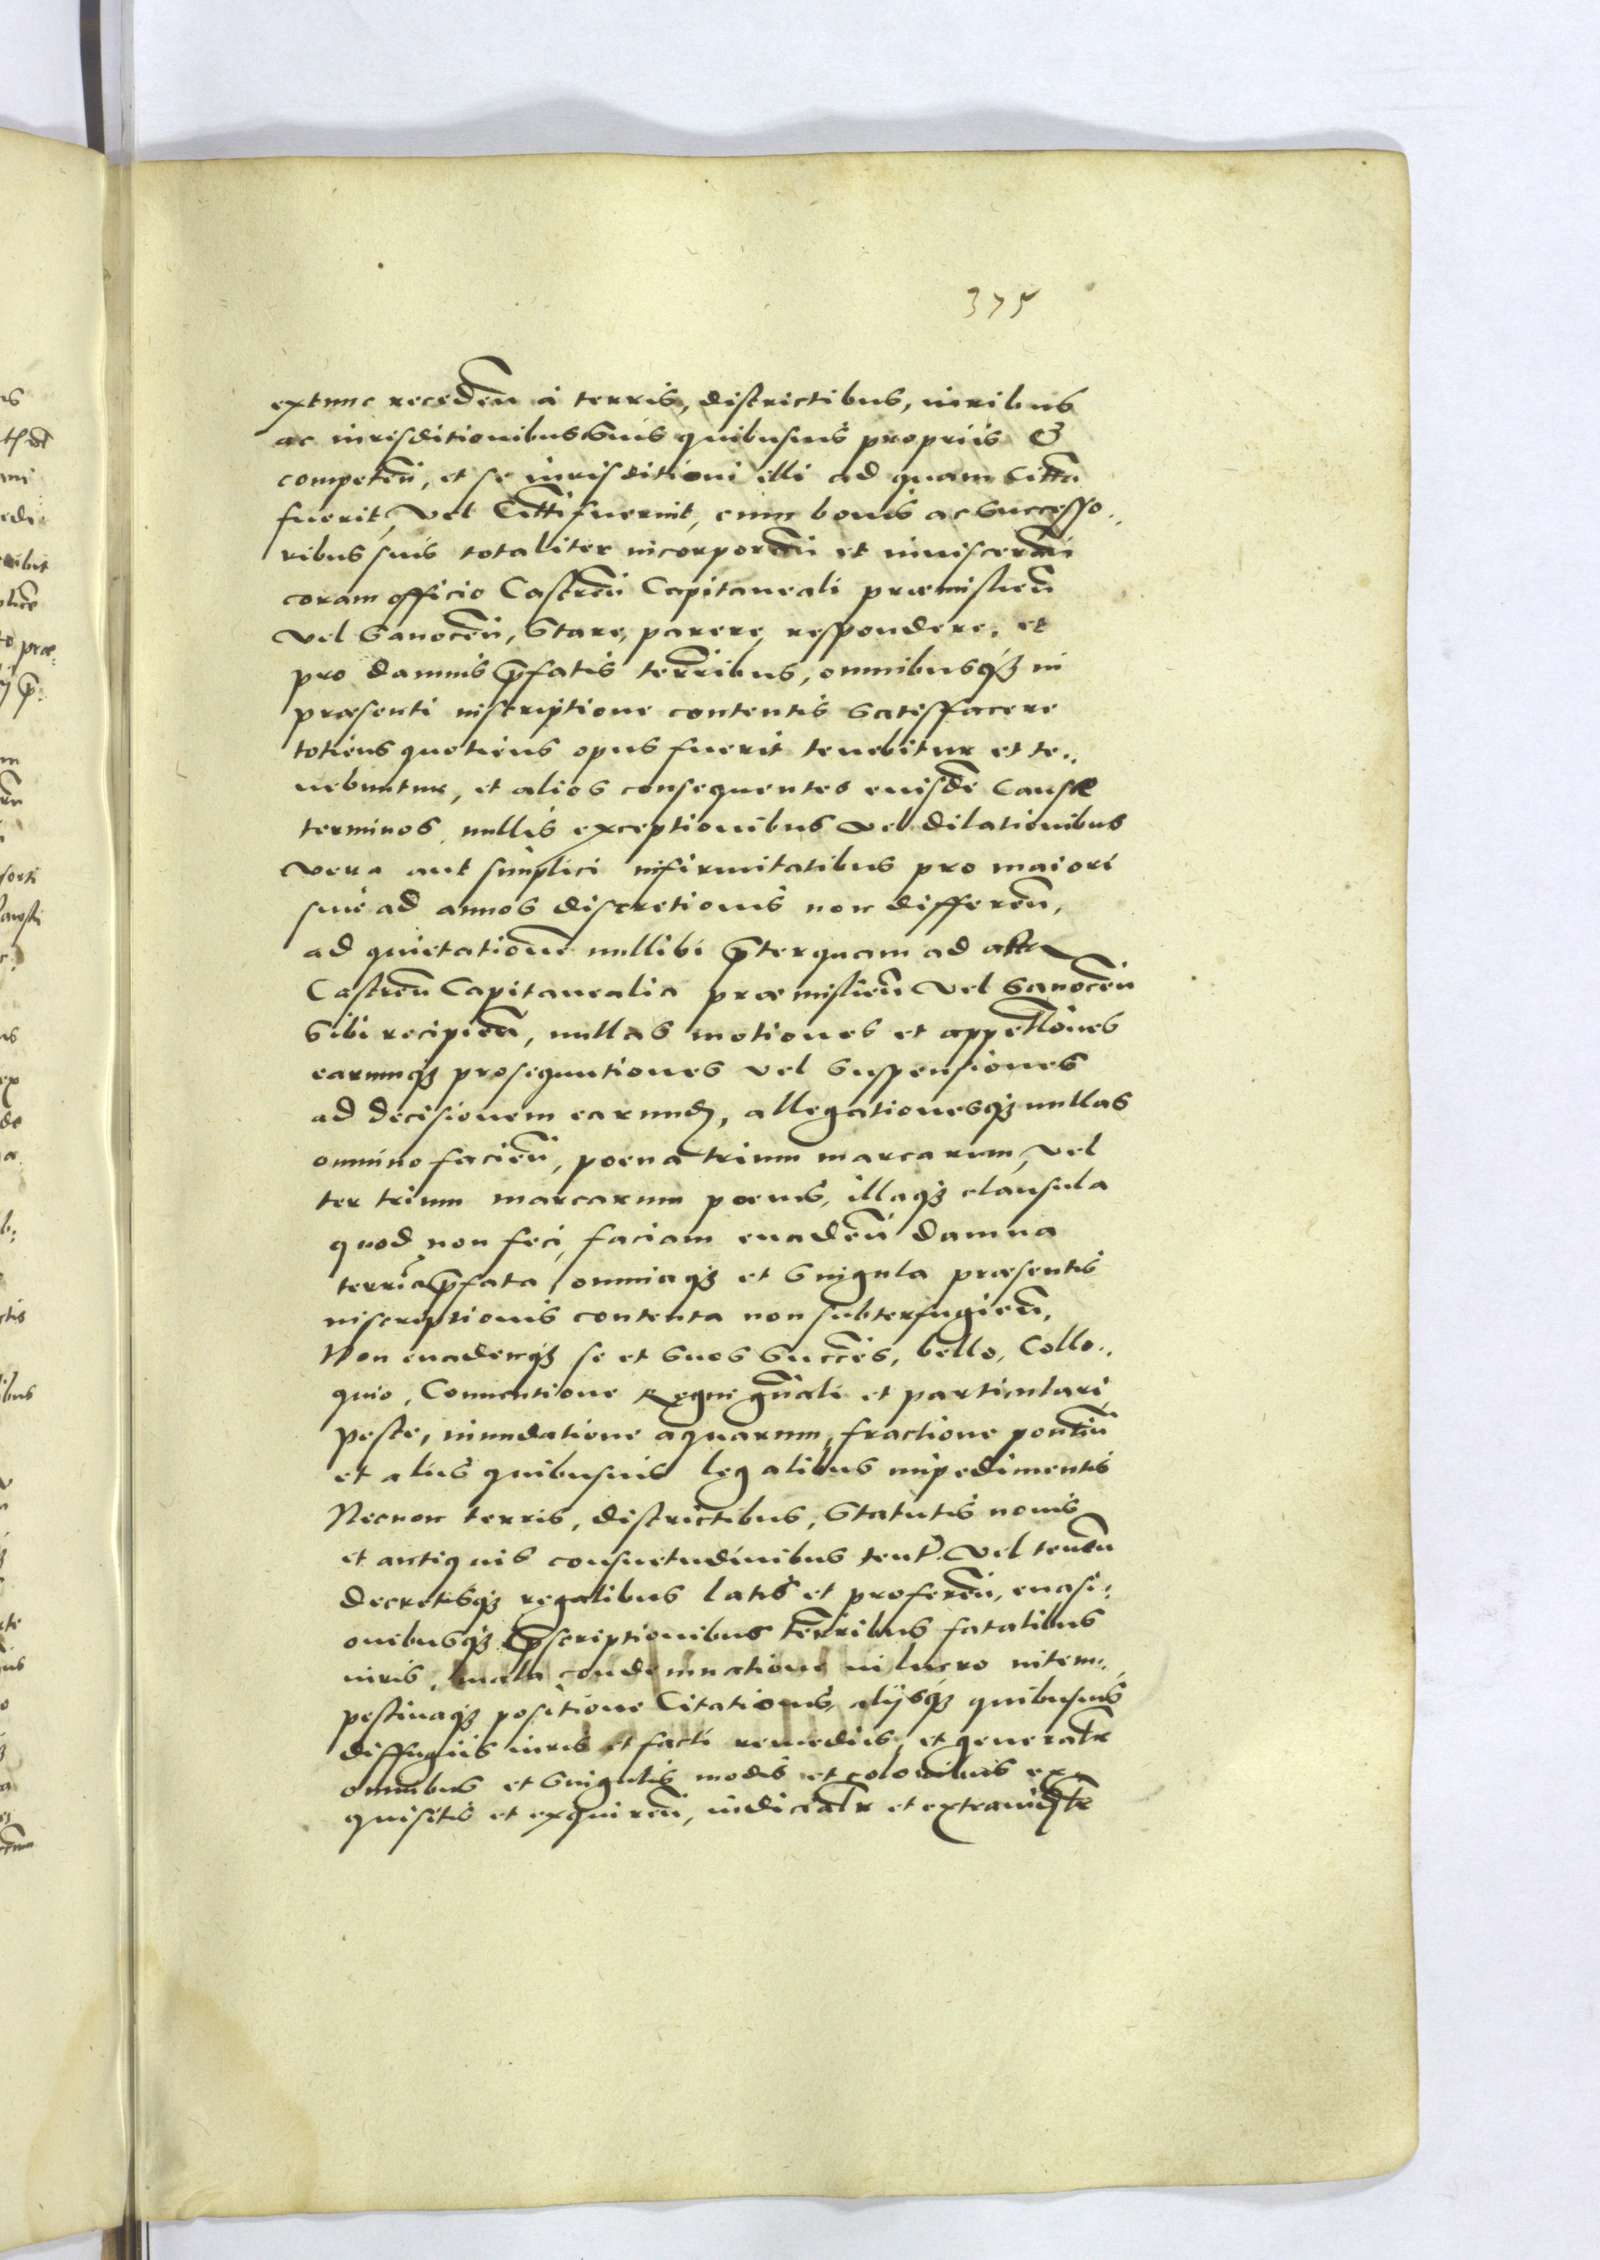 375
extunc receden a terris, districtibus, iuribus
ac iurisditionibus suis quibusuis propriis &
competen, et se iurisditioni illi ad quam Citta
fuerit, vel Citti fuerint, cum bonis ac Successo..
ribus suis totaliter incorporan et inuisceran
coram officio Castren Capitaneali præmislien
vel Sanocen, Stare, parere, respondere, et
pro damnis pfatis terribus, omnibusq3 in
præsenti inscriptione contentis Satisffacere
totiens quotiens opus fuerit tenebitur et te..
nebuntur, et alios consequentes euisde Causæ
terminos, nullis exceptionibus vel dilationibus
vera aut simplici infirmitatibus pro maiori
siue ad annos discretionis non differen,
ad quietatione nullibi pterquam ad acta
Castren Capitanealia præmislien vel Sanocen
Sibi recipien, nullas motiones et appellones
earumq3 prosequutiones vel Suspensiones
ad decisionem earund, allegationesq3 nullas
omnino facien, poena trium marcarum, vel
ter trium marcarum poenis, illaq3 clausula
quod non feci, faciam euaden damna
terria pfata, omniaq3 et Singula præsentis
inscriptionis contenta non subterfugien,
Non euadenq3 se et Suos Succes, bello, Collo..
quio, Conuentione Regni gnali et particulari,
peste, inundatione aquarum, fractione pontiu
et aliis quibusuis legalibus impedimentis
Necnon terris, districtibus, Statutis nouis
et antiquis consuetudinibus tent. vel tenen
decretisq3 regalibus latis et proferen, euasi..
onibusq3 pscriptionibus terribus fatalibus
iuris, mala condemnatione in lucro intem..
pestiuaq3 positione Citationis, alijsq3 quibusuis
diffugiis iuris et facti remediis, et generalr
omnibus et Singulis modis et coloribus ex..
quisitis et exquiren, iudicialr et extraiudlr